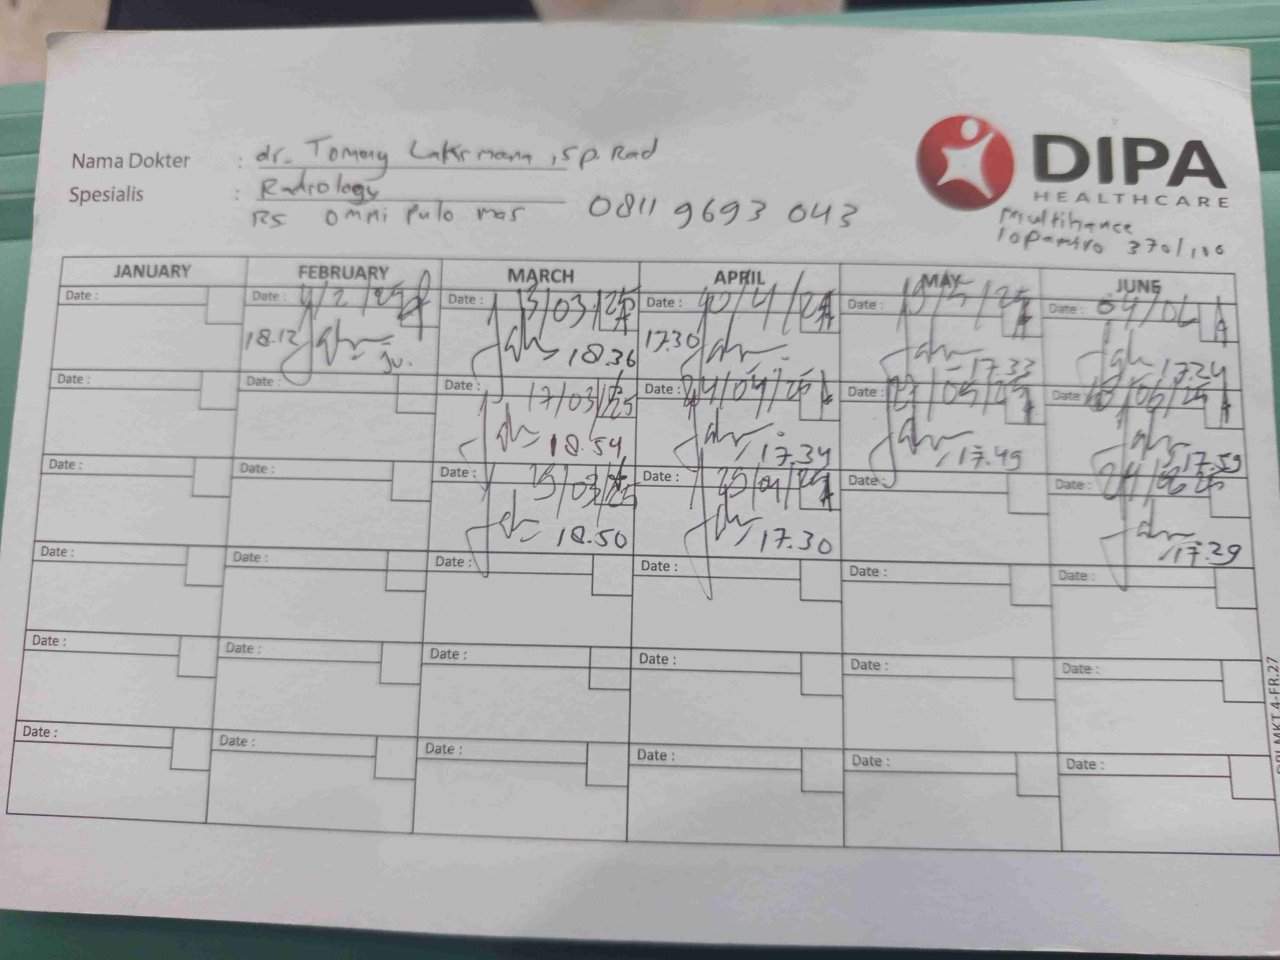 Nama Dokter : dr. Tommy Laksmana, Sp. Rad
Spesialis : Radiology
RS Omni Pulo mas 0811 9693 043
DIPA
HEALTHCARE
multihance
Iopamiro 370/100
JANUARY FEBRUARY MARCH APRIL MAY JUNE
Date : Date : 4/2/25 Date : 13/03/25 Date : 10/4/25 Date : 19/5/25 Date : 04/06
18.12 18.36 17.30 17.33 17.24
Date : Date : Date : 17/03/25 Date : 24/04/25 Date : Date :
18.54 17.34 17.49 17.59
Date : Date : Date : Date : Date : Date :
18.50 17.30 17.29
Date : Date : Date : Date : Date : Date :
Date : Date : Date : Date : Date : Date :
Date : Date : Date : Date : Date : Date :
MKT.4-FR.27